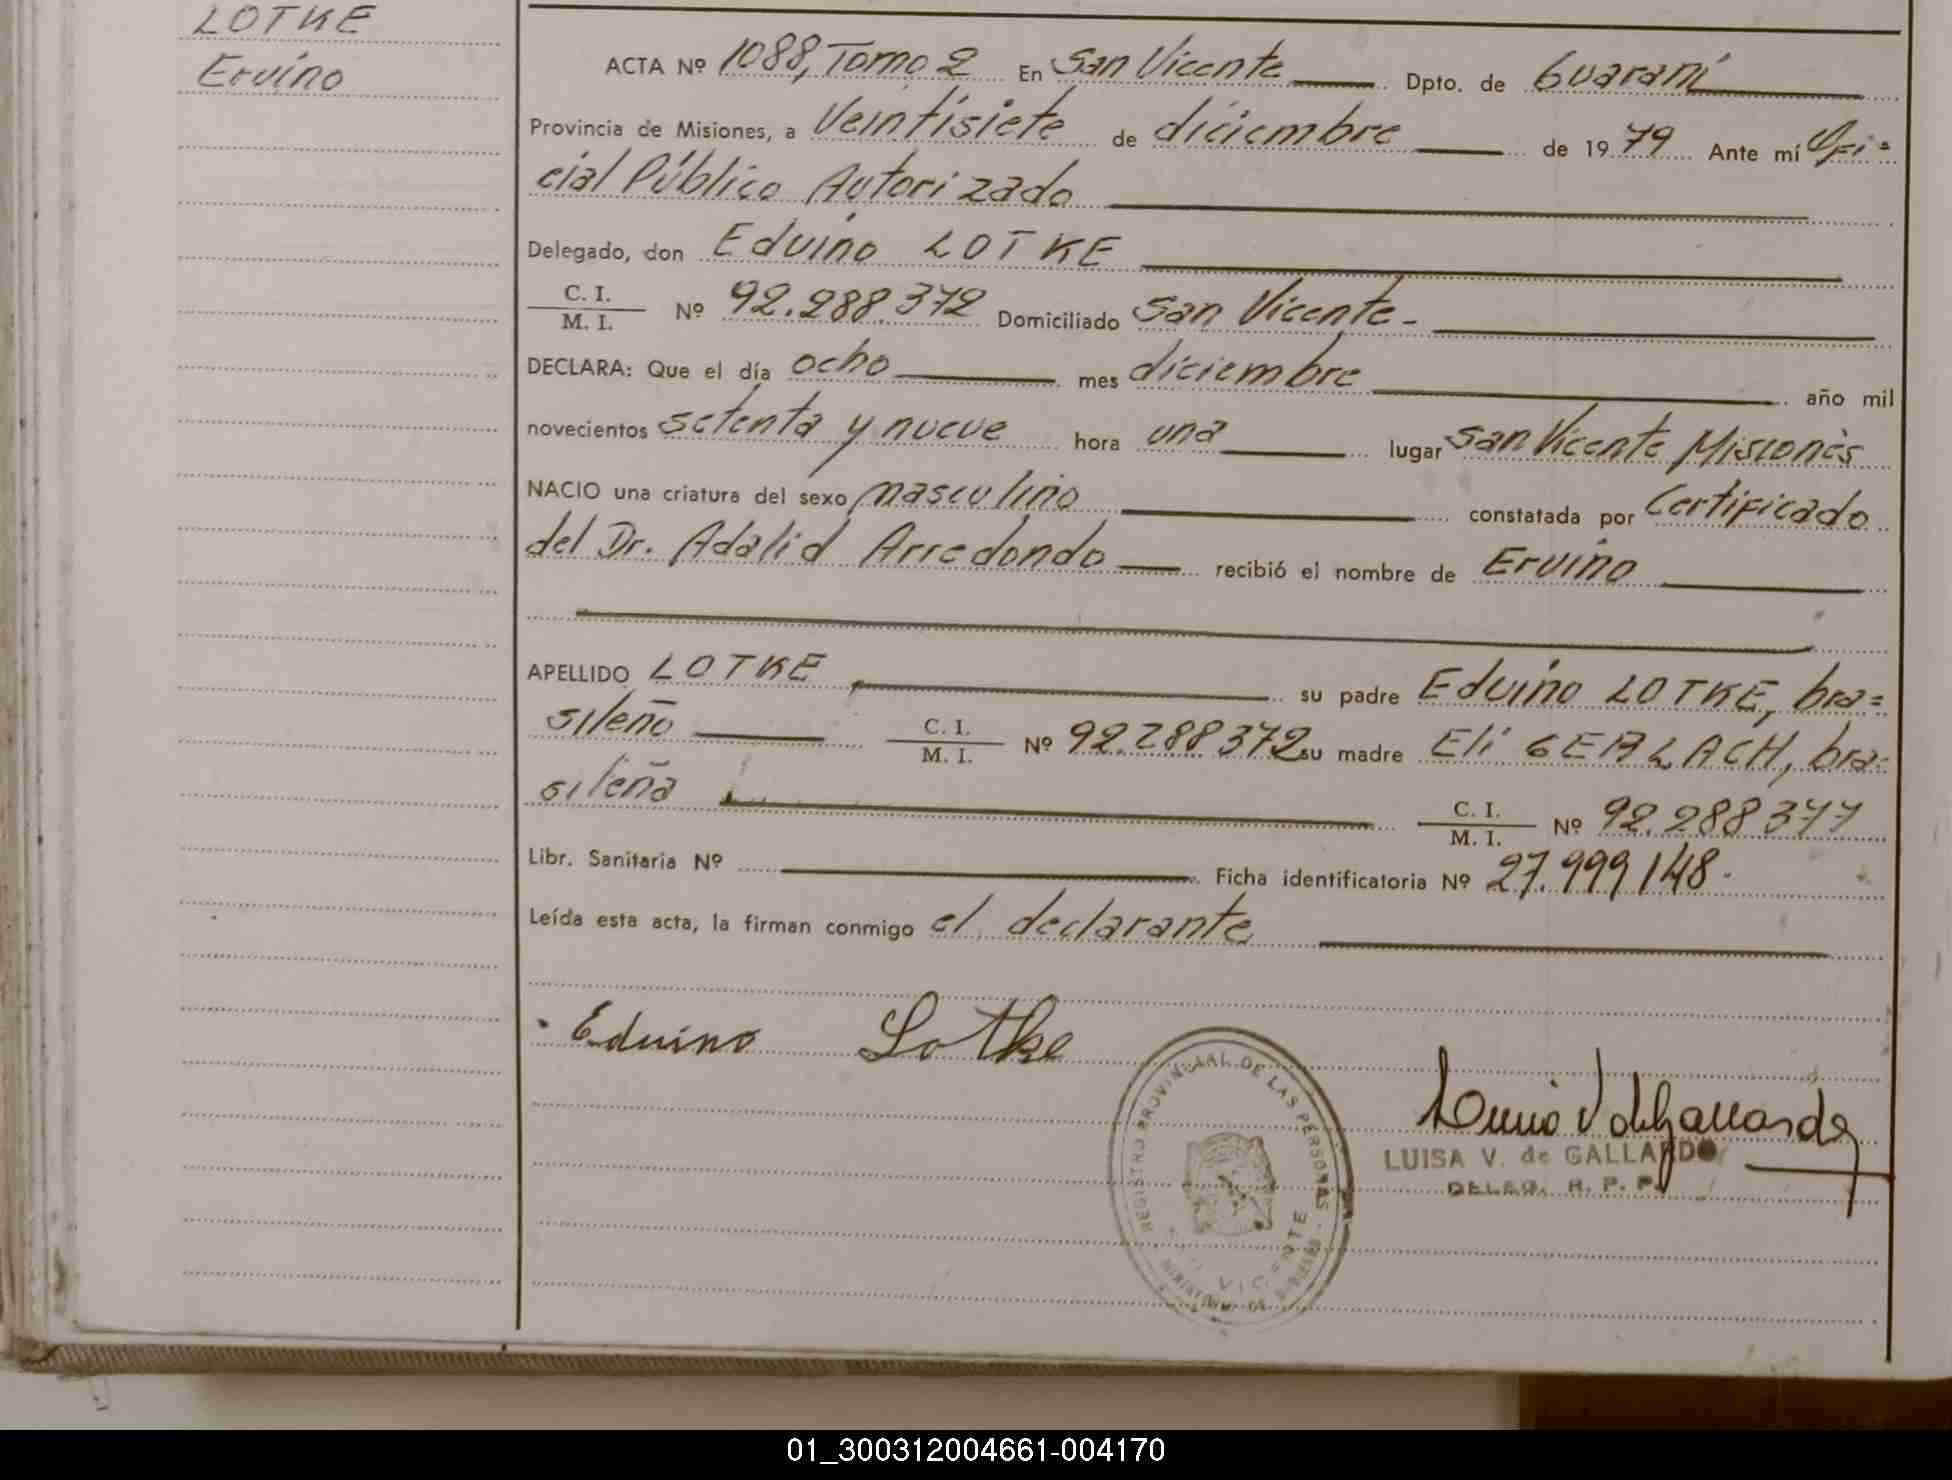 LOTKE
Ervino
ACTA Nº 1088, Tomo 2 En San Vicente Dpto. de Guaraní
Provincia de Misiones, a Veintisiete de diciembre de 1979 Ante mí Ofi=
cial Público Autorizado
Delegado, don Eduino LOTKE
C. I.
M. I. Nº 92.288.372 Domiciliado San Vicente-
DECLARA: Que el día ocho mes diciembre año mil
novecientos setenta y nueve hora una lugar San Vicente Misiones
NACIO una criatura del sexo masculino constatada por Certificado
del Dr. Adalid Arredondo recibió el nombre de Ervino
APELLIDO LOTKE su padre Eduino LOTKE, bra=
sileño C. I.
M. I. Nº 92.288.372 su madre Eli GERLACH, bra=
sileña C. I.
M. I. Nº 92.288.377
Libr. Sanitaria Nº Ficha identificatoria Nº 27.999.148.
Leída esta acta, la firman conmigo el declarante
Eduino Lotke
REGISTRO PROVINCIAL DE LAS PERSONAS
VICENTE
LUISA V. de GALLARDO
DELEG. R. P. P.
01_300312004661-004170